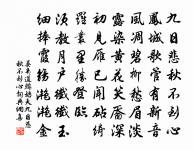 九日悲秋不到心
鳳城歌管有新音
風凋碧柳愁眉淡
露染黃花笑靨深
初見雁已聞砧
綺羅叢裏勝登臨
須教月戶纖纖玉
細捧霞觴灩灩金
晏幾道鷓鴣天九日悲
秋不到心